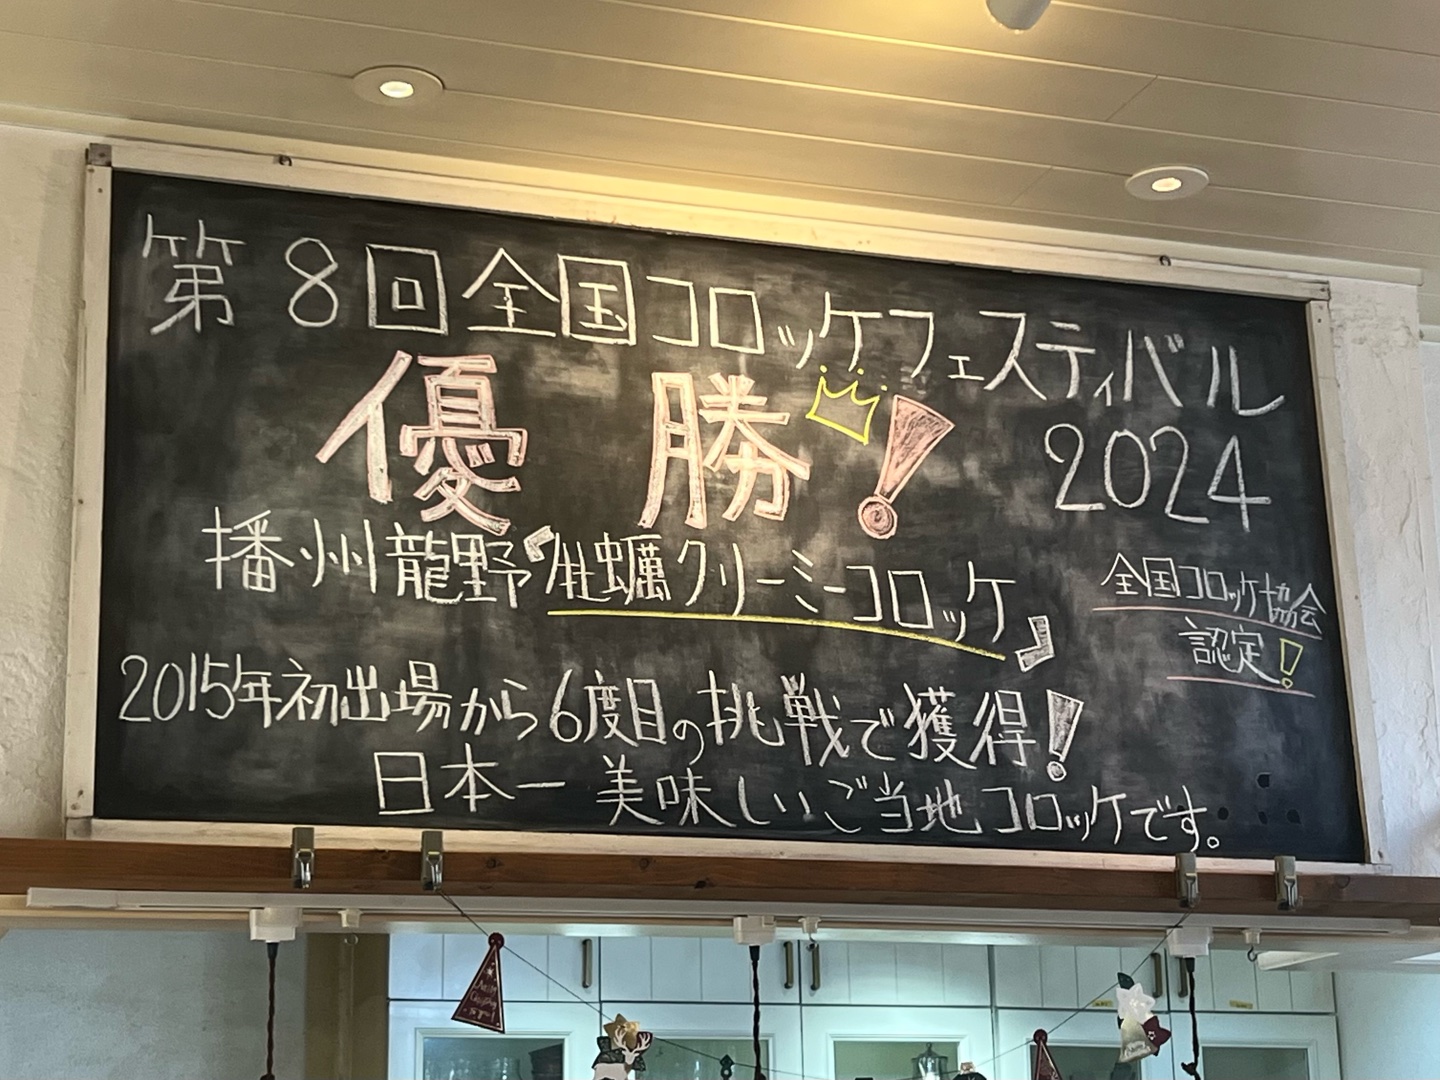 第8回全国コロッケフェスティバル
優勝！
2024
播州龍野『牡蠣クリーミーコロッケ』
全国コロッケ協会
認定！
2015年初出場から6度目の挑戦で獲得！
日本一美味しいご当地コロッケです。